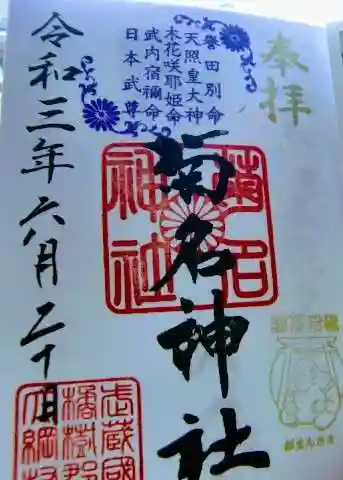 奉拝
誉田別命
天照皇大神
木花咲耶姫命
武内宿禰命
日本武尊
菊名神社
菊名
神社
令和三年六月二十日
武蔵國
橘樹郡
大綱村